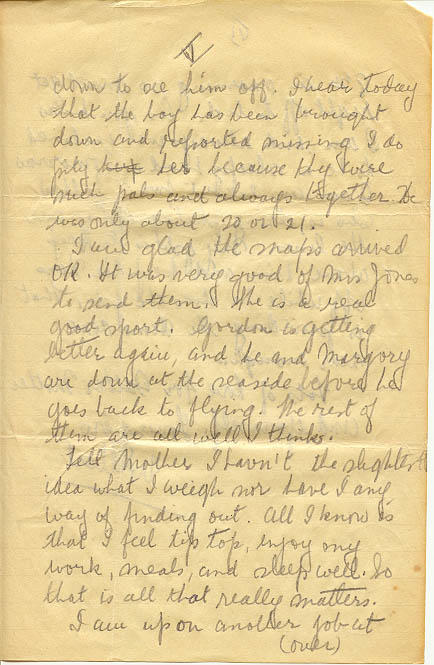 V
down to see him off. I hear today
that the boy has been brought
down and reported missing I do
pity her because they were
such pals and always together. He
was only about 20 or 21.
I am glad the snaps arrived
OK. It was very good of Mrs Jones
to send them. She is a real
good sport. Gordon is getting
better again, and he and Margory
are down at the seaside before he
goes back to flying. The rest of
them are all well I think.
Tell Mother I havn't the slightest
idea what I weigh nor have I any
way of finding out. All I know is
that I feel tip top, enjoy my
work, meals, and sleep well. So
that is all that really matters.
I am up on another job at
(over)